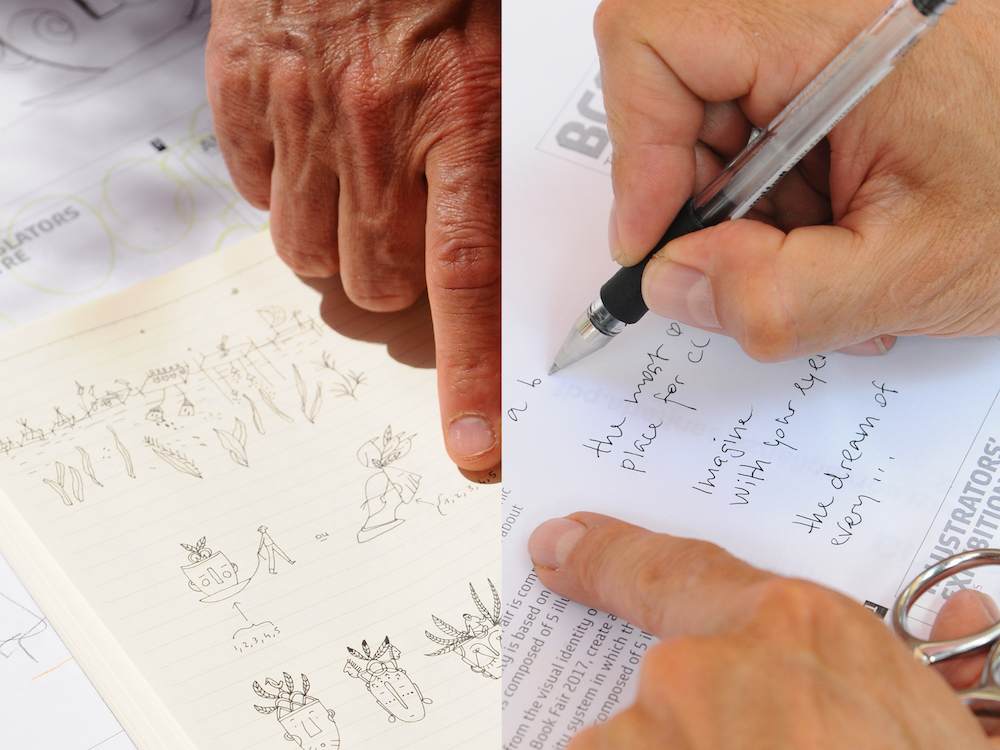 SLATORS
RE
{1,2,3,4,5
ou
1,2,3,4,5
a b
the most
place for
Imagine
with your eyes
the dream of
every!!!
USTRATORS'
about
air is com
is based on
composed of 5 illu
from the visual identity o
Book Fair 2017, create a
ity system in which th
composed of 5 il